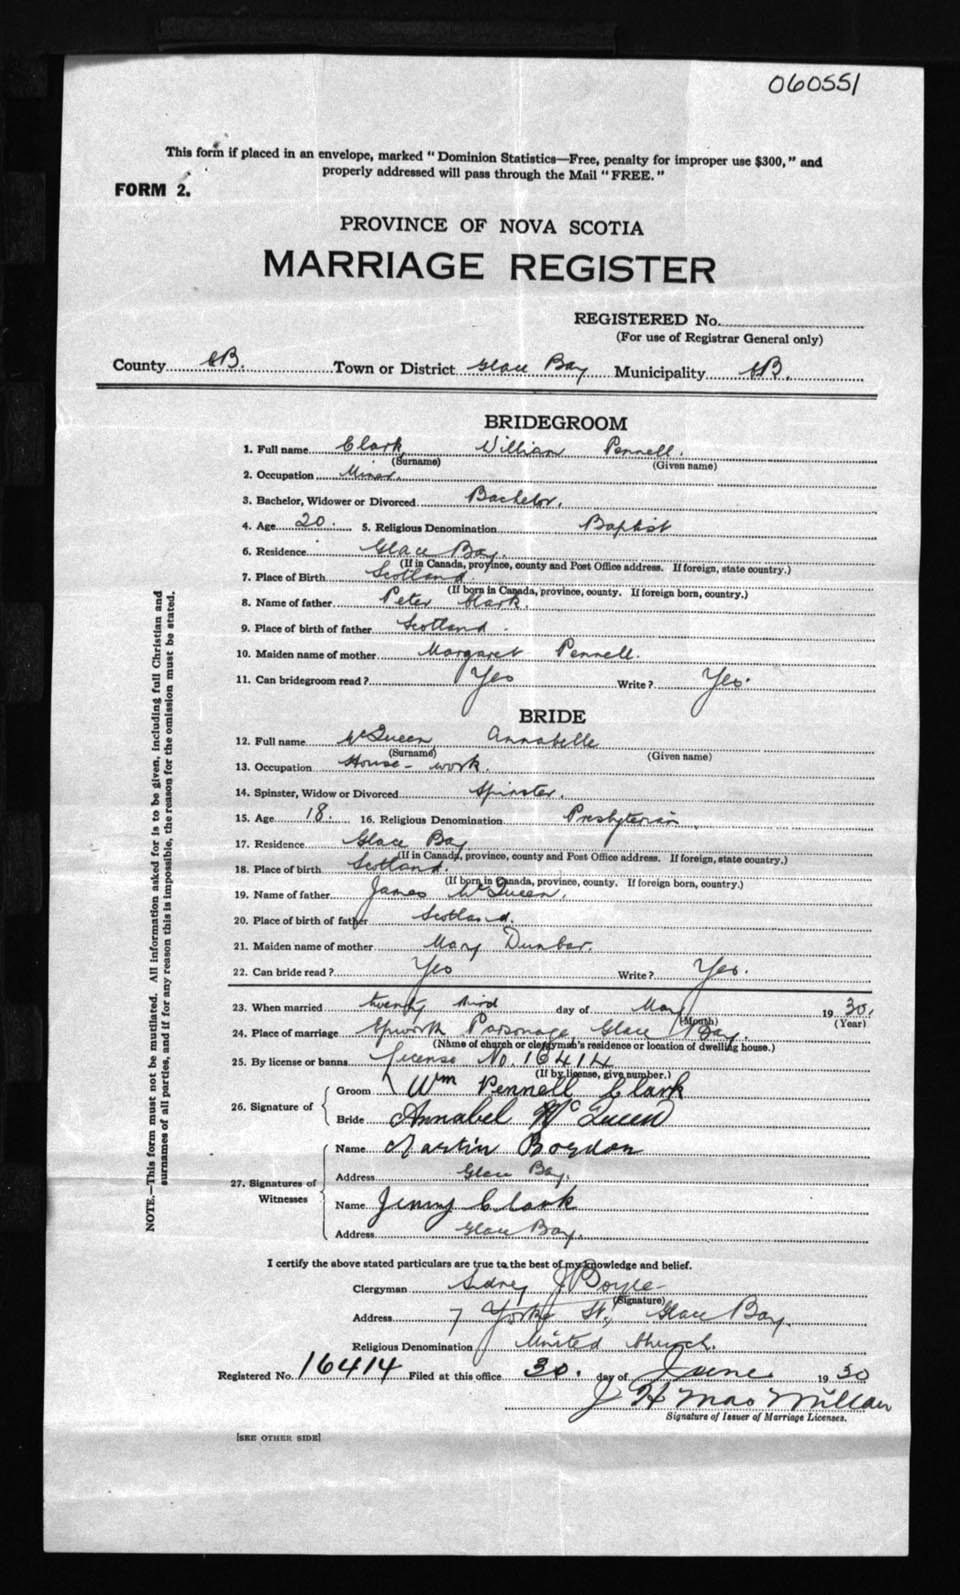 060551
This form if placed in an envelope, marked "Dominion Statistics—Free, penalty for improper use $300," and
properly addressed will pass through the Mail "FREE."
FORM 2.
PROVINCE OF NOVA SCOTIA
MARRIAGE REGISTER
REGISTERED No.
(For use of Registrar General only)
County CB. Town or District Glace Bay Municipality CB.
BRIDEGROOM
1. Full name Clark William Pennell.
(Surname) (Given name)
2. Occupation Miner.
3. Bachelor, Widower or Divorced Bachelor.
4. Age 20. 5. Religious Denomination Baptist
6. Residence Glace Bay.
(If in Canada, province, county and Post Office address. If foreign, state country.)
7. Place of Birth Scotland.
(If born in Canada, province, county. If foreign born, country.)
8. Name of father Peter Clark.
9. Place of birth of father Scotland.
10. Maiden name of mother Margaret Pennell.
11. Can bridegroom read? Yes Write? Yes.
BRIDE
12. Full name McQueen Annabelle
(Surname) (Given name)
13. Occupation House-work.
14. Spinster, Widow or Divorced Spinster.
15. Age 18. 16. Religious Denomination Presbyterian
17. Residence Glace Bay
(If in Canada, province, county and Post Office address. If foreign, state country.)
18. Place of birth Scotland.
(If born in Canada, province, county. If foreign born, country.)
19. Name of father James McQueen.
20. Place of birth of father Scotland.
21. Maiden name of mother Mary Dunbar.
22. Can bride read? Yes Write? Yes.
23. When married twenty third day of May 1930.
(Month) (Year)
24. Place of marriage Epworth Parsonage, Glace Bay.
(Name of church or clergyman's residence or location of dwelling house.)
25. By license or banns License No. 16414
(If by license, give number.)
26. Signature of
Groom Wm Pennell Clark
Bride Annabel McQueen
27. Signatures of Witnesses
Name Martin Boydon
Address Glace Bay.
Name Jenny Clark
Address Glace Bay.
I certify the above stated particulars are true to the best of my knowledge and belief.
Clergyman Sidney J Boyce
(Signature)
Address 7 Yorke St., Glace Bay.
Religious Denomination United Church.
Registered No. 16414 Filed at this office 30. day of June 1930
J H MacMillan
Signature of Issuer of Marriage Licenses.
[SEE OTHER SIDE]
NOTE.—This form must not be mutilated. All information asked for is to be given, including full Christian and
surnames of all parties, and if for any reason this is impossible, the reason for the omission must be stated.